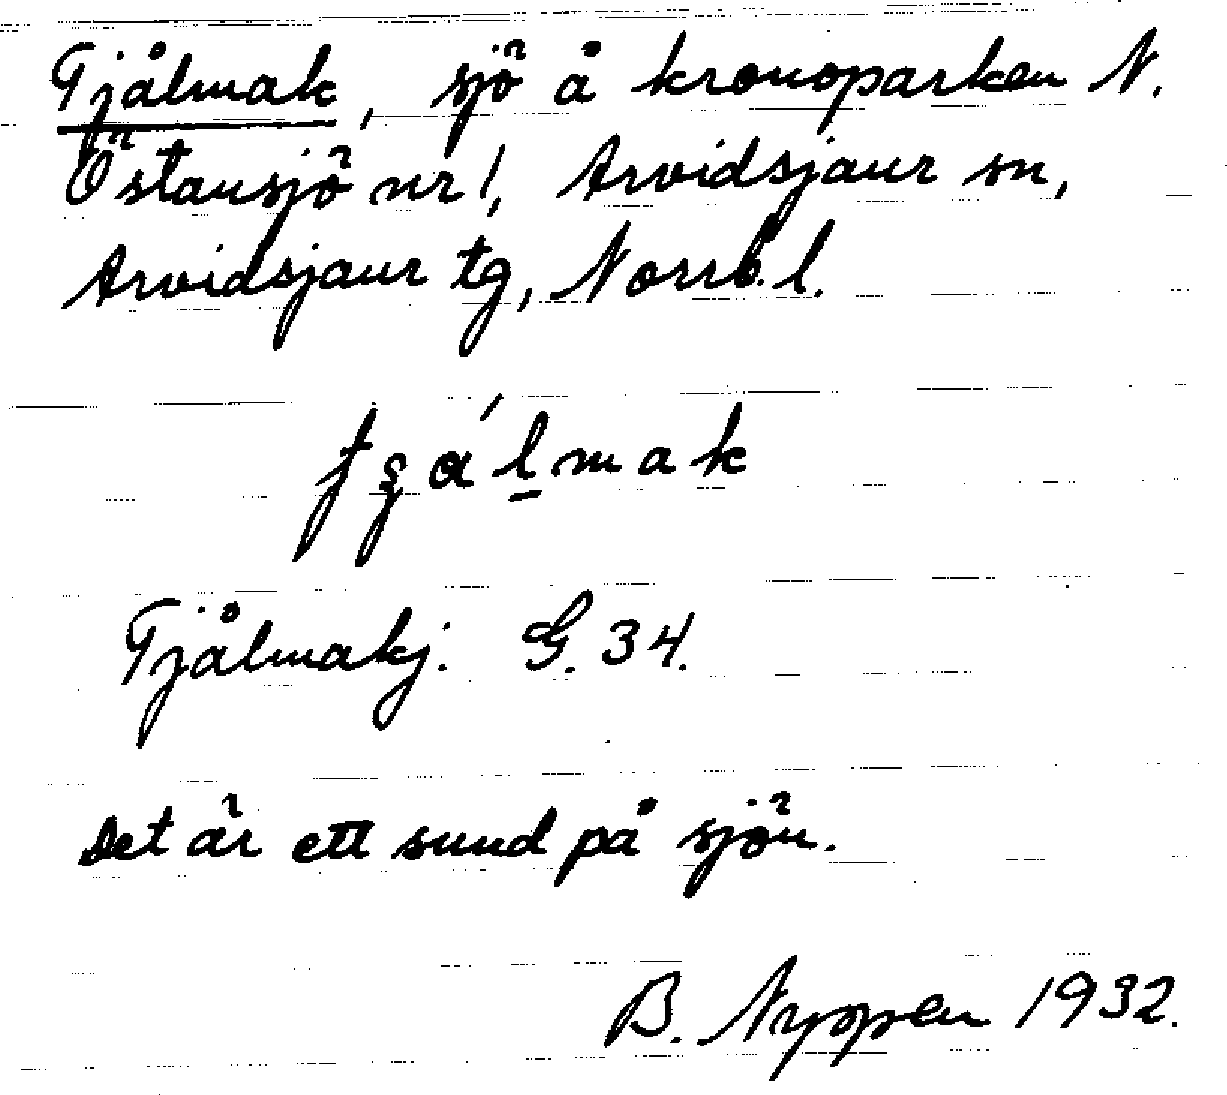 Tjålmak, sjö å kronoparken N.
Östansjö nr 1, Arvidsjaur sn,
Arvidsjaur tg, Norrb. l.
Tjålmakj. G. 34.
Det är ett sund på sjön.
B. Nyppen 1932.